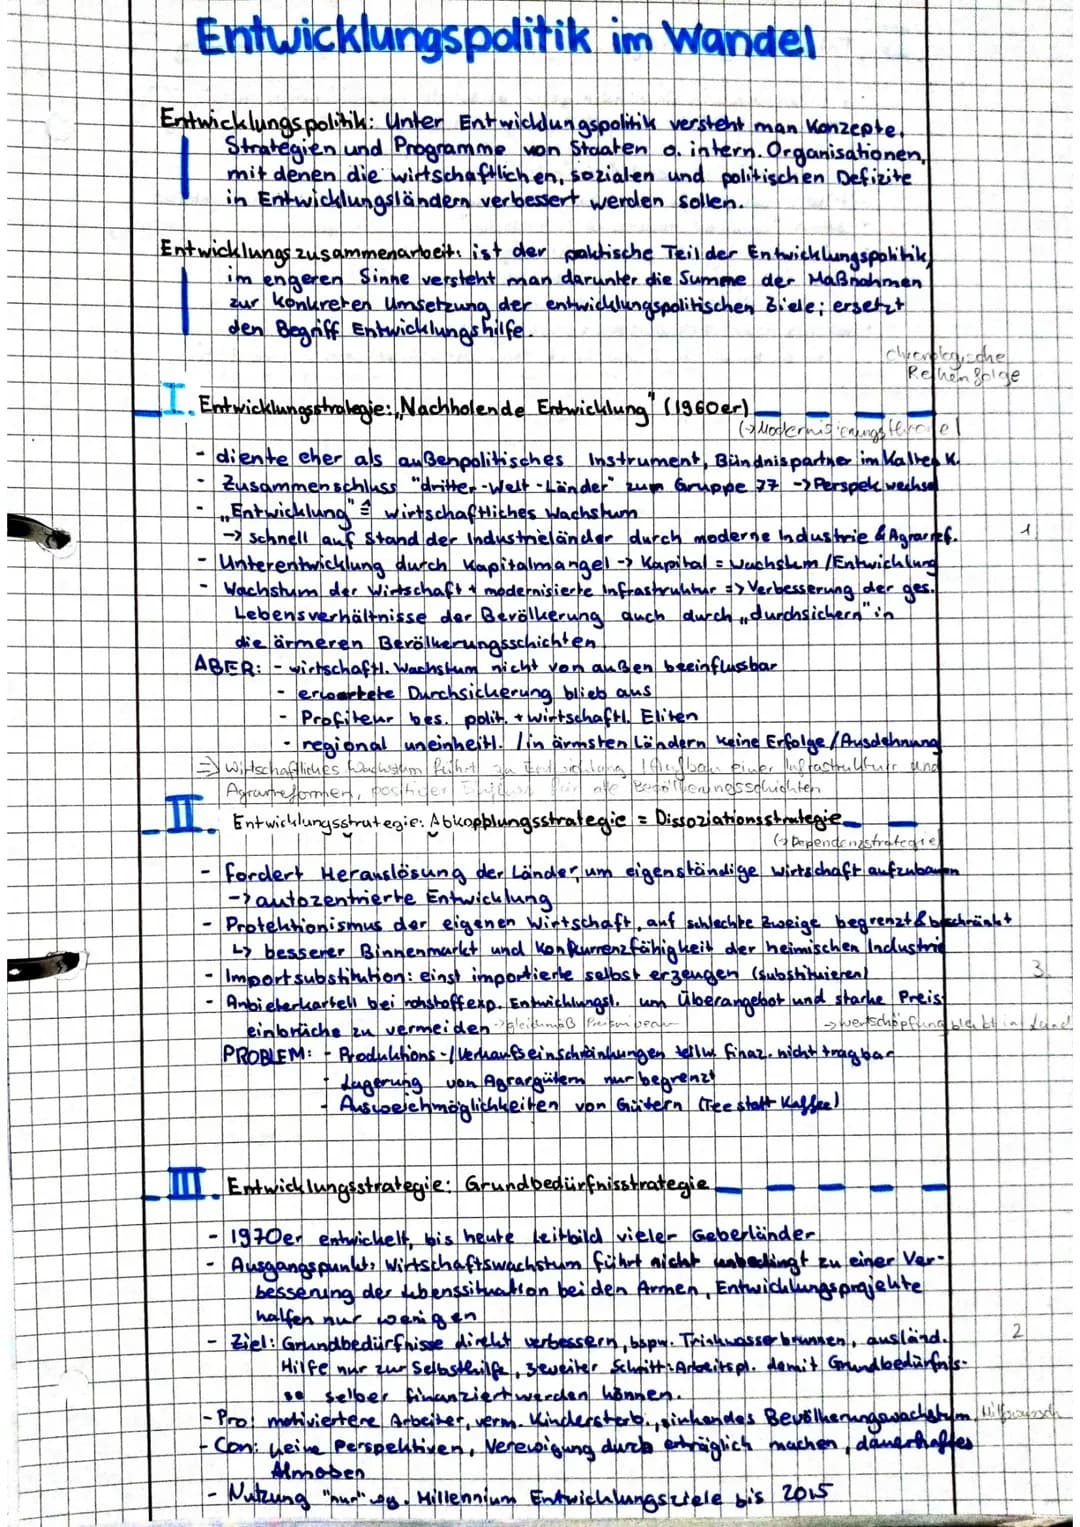 Entwicklungspolitik im Wandel
Entwicklungspolitik: Unter Entwicklungspolitik versteht man Konzepte,
Strategien und Programme von Staaten o. intern. Organisationen,
mit denen die wirtschaftlichen, sozialen und politischen Defizite
in Entwicklungsländern verbessert werden sollen.
Entwicklungszusammenarbeit: ist der paktische Teil der Entwicklungspolitik,
im engeren Sinne versteht man darunter die Summe der Maßnahmen
zur konkreten Umsetzung der entwicklungspolitischen Ziele; ersetzt
den Begriff Entwicklungshilfe.
chronologische
Reihenfolge
I. Entwicklungsstrategie: „Nachholende Entwicklung" (1960er)
(→Modernisierungstheorie)
- diente eher als außenpolitisches Instrument, Bündnispartner im Kalten K.
- Zusammenschluss "dritter-Welt-Länder" zum Gruppe 77 -> Perspekwechsel
- „Entwicklung" ≙ wirtschaftliches Wachstum
-> schnell auf Stand der Industrieländer durch moderne Industrie & Agrarref.
1.
- Unterentwicklung durch Kapitalmangel -> Kapital = Wachstum/Entwicklung
- Wachstum der Wirtschaft + modernisierte Infrastruktur => Verbesserung der ges.
Lebensverhältnisse der Bevölkerung auch durch „durchsichern" in
die ärmeren Bevölkerungsschichten
ABER: - wirtschaftl. Wachstum nicht von außen beeinflussbar
- erwartete Durchsickerung blieb aus
- Profiteur bes. polit. + wirtschaftl. Eliten
- regional uneinheitl. / in ärmsten Ländern keine Erfolge/Ausdehnung
=> wirtschaftliches Wachstum führt zu Entwicklung (Aufbau einer Infrastruktur und
Agrarreformen, positiver Einfluss für alle Bevölkerungsschichten
II. Entwicklungsstrategie: Abkopplungsstrategie = Dissoziationsstrategie
(→Dependenzstrategie)
- fordert Herauslösung der Länder, um eigenständige wirtschaft aufzubauen
-> autozentrierte Entwicklung
- Protektionismus der eigenen Wirtschaft, auf schlechte Zweige begrenzt & beschränkt
↳ besserer Binnenmarkt und Konkurrenzfähigkeit der heimischen Industrie
- Importsubstitution: einst importierte selbst erzeugen (substituieren)
3.
- Anbieterkartell bei rohstoffexp. Entwicklungsl. um Überangebot und starke Preis-
einbrüche zu vermeiden → gleichmäß
→ wertschöpfung bleibt im Land
PROBLEM: - Produktions-/Verkaufseinschränkungen teilw. finaz. nicht tragbar
- Lagerung von Agrargütern nur begrenzt
- Ausweichmöglichkeiten von Gütern (Tee statt Kaffee)
III. Entwicklungsstrategie: Grundbedürfnisstrategie
- 1970er entwickelt, bis heute Leitbild vieler Geberländer
- Ausgangspunkt: Wirtschaftswachstum führt nicht unbedingt zu einer Ver-
besserung der Lebenssituation bei den Armen, Entwicklungsprojekte
halfen nur wenigen
- Ziel: Grundbedürfnisse direkt verbessern, bspw. Trinkwasserbrunnen, ausländ.
2
Hilfe nur zur Selbsthilfe, zweiter Schritt: Arbeitspl. damit Grundbedürfnis-
se selber finanziert werden können.
- Pro: motiviertere Arbeiter, verm. Kindersterb., sinkendes Bevölkerungswachstum,
- Con: keine Perspektiven, Verewigung durch erträglich machen, dauerhaftes
Almosen
- Nutzung "nur" wg. Millennium Entwicklungsziele bis 2015